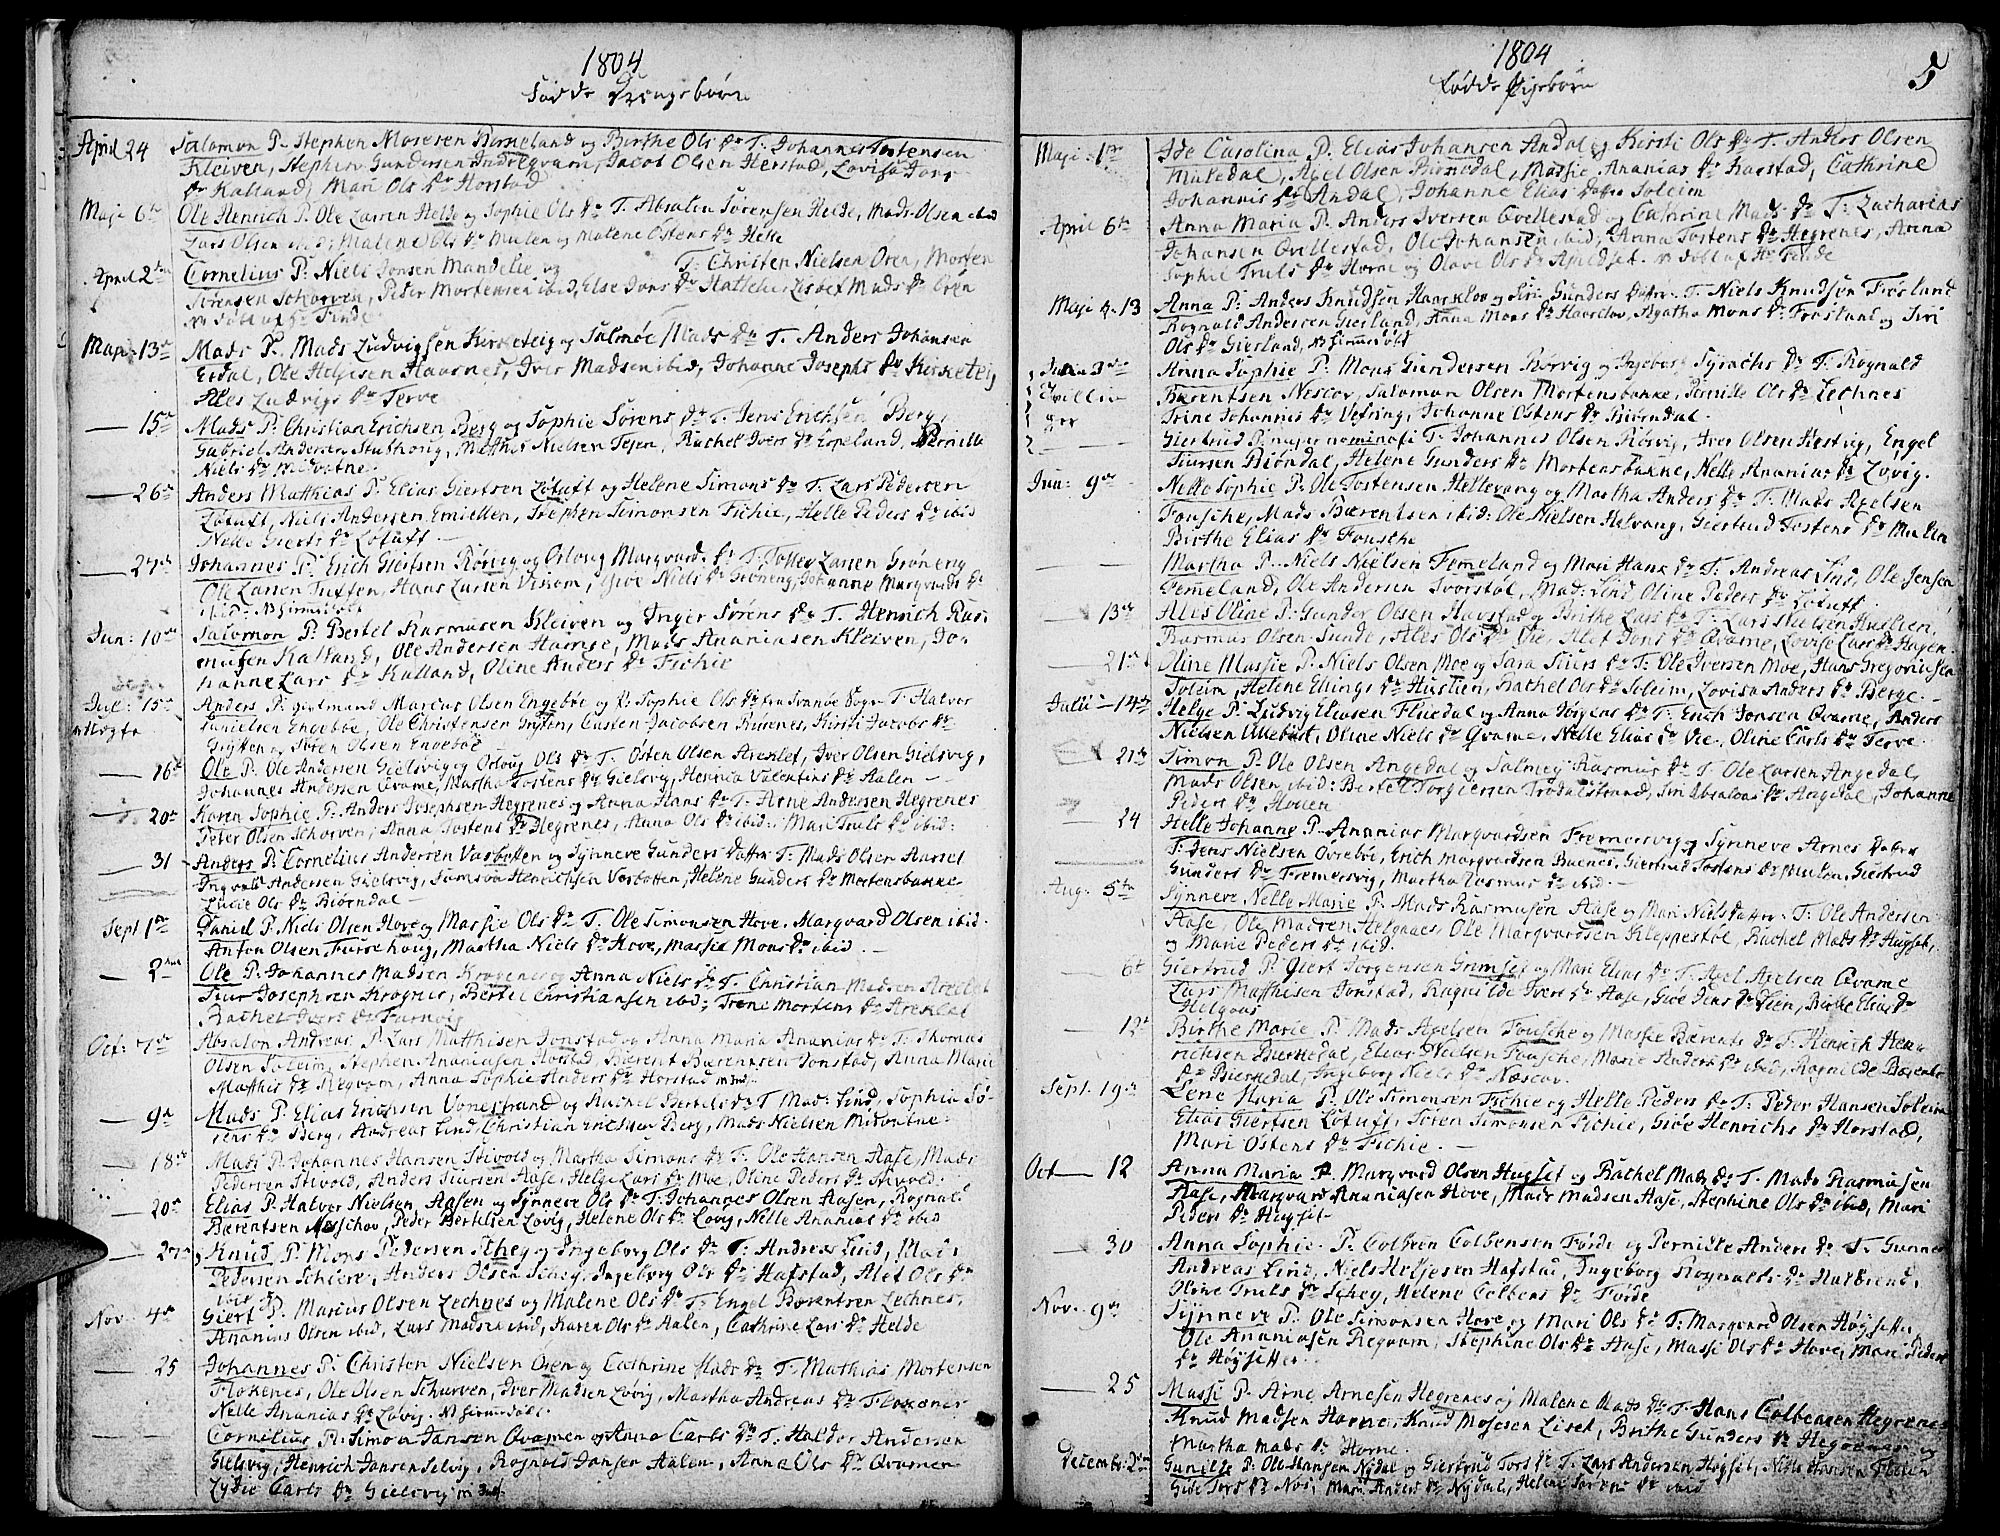 1804
Fødde Drengebørn
April 24 Salomon P. Stephen Mosesen Horneland og Birthe Ols Dr T. Johannes Tostensen
Kleiven, Stephen Gundersen Indreqvam, Jacob Olsen Herstad, Lovisa Jons
Dr Kalland, Mari Ols Dr Horstad
Maji 6te Ole Henrich P. Ole Larsen Helde og Sophie Ols Dr T. Absalon Sørensen Helde, Mads Olsen ibid
Lars Olsen ibid, Malene Ols Dr Mulen og Malene Ostens Dr Helle
April 2den Cornelius P. Niels Jonsen Mandelie og T. Christen Nielsen Oren, Morten
Sørensen Schorven, Peder Mortensen ibid, Else Jons Dr Hatlelie, Lisbet Mads Dr Oren
Maji 13de Mads P. Mads Ludvigsen Kirketeig og Salmøe Mads Dr T. Anders Johansen
Erdal, Ole Helgesen Haarnes, Iver Madsen ibid, Johanne Josephs Dr Kirketeig
Ales Ludvigs Dr Terve
— 15de Mads P. Christian Erichsen Berg og Sophie Sørens Dr T. Jens Erichsen Berg,
Gabriel Andersen Stufhoug, Mathis Nielsen Tejen, Rachel Ivers Dr Espeland, Pernille
Niels Dr Midvatne.
— 26de Anders Matthias P. Elias Giertsen Løtuft og Helene Simons Dr T. Lars Pedersen
Løtuft, Niels Andersen Emiellen, Stephen Simonsen Fichie, Helle Peders Dr ibid
Nelle Gierts Dr Løtuft —
— 27de Johannes P. Erich Giertsen Rørvig og Orloug Margvards Dr T. Tosten Larsen Grøneng
Ole Larsen Tuften, Hans Larsen Viskom, Giøe Niels Dr Grøneng, Johanne Margvards Dr
ibid. NB hjemmedøbt
Jun: 10de Salomon P. Bertel Rasmusen Kleiven og Inger Sørens Dr T. Henrich Ras-
musen Kalland, Ole Andersen Hornse, Mads Ananiasen Kleiven, Jo-
hanne Lars Dr Kalland, Oline Anders Dr Fichie
Jul: 15de Anders P. gertmand Marcus Olsen Engebøe og Sophie Ols Dr fra Svanøe Sogn T. Halvor
Danielsen Engebøe, Ole Christensen Gryten, Casten Jacobsen Rørenes, Kirsti Jacobs Dr
Gryten og Søren Olsen Engebøe
— 16de Ole P. Ole Andersen Gielsvig og Orloug Ols Dr T. Osten Olsen Areklet, Iver Olsen Gielsvig,
Johannes Andersen Qvame, Martha Tostens Dr Gielsvig, Henrica Valentins Dr Aalen —
— 20de Karen Sophie P. Anders Josephsen Hegrenes og Anna Hans Dr T. Arne Andersen Hegrenes
Peter Olsen Schorven, Anna Tostens Dr Hegrenes, Anna Ols Dr ibid:, Mari Truls Dr ibid:
— 31 Anders P. Cornelius Andersen Vasbotten og Synneve Gunders Datter T: Mads Olsen Aarset
Ingvald Andersen Gielsvig, Samson Henrichsen Vasbotten, Helene Gunders Dr Mortensbakke
Lucie Ols Dr Biørndal —
Sept 1ste Daniel P. Niels Olsen Hove og Massie Ols Dr T. Ole Simonsen Hove, Margvard Olsen ibid.
Anton Olsen Furuehoug, Martha Niels Dr Hove, Massie Mons Dr ibid. —
— 2den Ole P. Johannes Madsen Krogenes og Anna Niels Dr T. Christian Madsen Areklet
Siur Josephsen Krognes, Bertel Christiansen ibid; Trene Mortens Dr Areklet
Rachel Ivers Dr Furevig
Oct: 7de Absalon Andreas P. Lars Matthisen Jonstad og Anna Maria Ananias Dr T: Thomas
Olsen Soleim, Stephen Ananiasen Horstad, Bærent Bærentsen Jonstad, Anna Marie
Matthis Dr Regvam, Anna Sophie Anders Dr Horstad
— 9de Mads P. Elias Erichsen Vonestrand og Rachel Bertels Dr T. Mads Lind, Sophia Sø-
rens Dr Berg, Andreas Lind, Christian Erichsen Berg, Mads Nielsen Midvatne.
— 18de Mads P. Johannes Hansen Stivold og Martha Simons Dr T. Ole Hansen Aase, Mads
Pedersen Stivold, Anders Siursen Aase, Helge Lars Dr Moe, Oline Peders Dr Stivold.
— 20de Elias P. Halvor Nielsen Aasen og Synneve Ols Dr T. Johannes Olsen Aasen, Rognald
Bærentsen Noschov, Peder Bertelsen Løvig, Helene Ols Dr Løvig, Nelle Ananias Dr ibid
— 27de Knud P. Mons Pedersen Scheg og Ingeborg Ols Dr T. Andreas Lind, Mads
Pedersen Schiere, Anders Olsen Scheg, Ingeborg Ols Dr Hafstad, Alet Ols Dr
ibid
Nov. 4de Giert P. Marius Olsen Lechnes og Malene Ols Dr T. Engel Bærentsen Lechnes,
Ananias Olsen ibid, Lars Madsen ibid, Karen Ols Dr Aalen, Cathrine Lars Dr Helde
— 25 Johannes P. Christen Nielsen Osen og Cathrine Mads Dr T. Mathias Mortensen
Flokenes, Ole Olsen Schurven, Iver Madsen Løvig, Martha Andreas Dr Flokenes
Nelle Ananias Dr Løvig.
— — Cornelius P. Simon Jansen Qvamen og Anna Carls Dr T. Haldor Andersen
Gielsvig, Henrich Jansen Selvig, Rognald Jansen Aalen, Anna Ols Dr Qvamen
Lydie Carls Dr Gielsvig
1804
Fødde Pigebørn
5
Maji 1ste Ide Carolina P. Elias Johansen Andal og Kirsti Ols Dr T. Anders Olsen
Muledal, Axel Olsen Birkedal, Massie Ananias Dr Kaarstad, Cathrine
Johannis Dr Andal, Johanne Elias Datter Soleim
April 6te Anna Maria P. Anders Iversen Qvellestad og Cathrine Mads Dr T. Zacharias
Johansen Qvillestad, Ole Johansen ibid, Anna Tostens Dr Hegrenes, Anna
Sophie Truls Dr Horne og Olave Ols Dr Apeldset.
Maji d. 13 Anna P. Anders Knudsen Haarklov og Siri Gunders Datter. T. Niels Knudsen Frøsland
Rognald Andersen Gierland, Anna Mons Dr Haarclov, Agatha Mons Dr Frosland og Siri
Ols Dr Gierland,
Junii 3die Anna Sophie P. Mons Gundersen Rørvig og Ingeborg Syrachs Dr T. Rognald
Tvillinger Bærentsen Noscov, Salomon Olsen Mortensbakke, Pernille Ols Dr Lechnes
Trine Johannis Dr Vefring, Johanne Ostens Dr Biørndal.
— Giertrud P. nuper nominati T. Johannes Olsen Rørvig, Iver Olsen Hestvig, Engel
Siursen Biøndal, Helene Gunders Dr Mortensbakke, Nelle Ananias Dr Løvig.
Jun: 9de Nelle Sophie P. Ole Tostensen Hellevang og Martha Anders Dr T. Mads Axelsen
Fousche, Mads Bærentsen ibid: Ole Nielsen Helvang, Giertrud Tostens Dr Mulen
Birthe Elias Dr Fousche
— — Martha P. Niels Nielsen Femeland og Mari Hans Dr T: Andreas Lind, Ole Jensen
Femeland, Ole Andersen Svorstøl, Mad: Lind Oline Peders Dr Løtuft.
— 13de Ales Oline P. Gunder Olsen Havstad og Birthe Lars Dr T. Lars Nielsen Hustien,
Rasmus Olsen Sunde, Ales Ols Dr Vie, Alet Jons Dr Qvame, Lovise Lars Dr Hagen.
— 21de Oline Massie P. Niels Olsen Moe og Sara Siurs Dr T: Ole Iversen Moe, Hans Gregoriussen
Soleim, Helene Ellings Dr Hustien, Rachel Ols Dr Soleim, Lovisa Anders Dr Berge. —
Julii — 14de Helge P. Ludvig Eliasen Fluedal og Anna Jørgens Dr T. Erich Jonsen Qvame, Anders
Nielsen Ullebust, Oline Niels Dr Qvame, Nelle Elias Dr Vie, Oline Carls Dr Terve.
21de Simon P. Ole Olsen Angedal og Salmey Rasmus Dr T. Ole Larsen Angedal,
Mads Olsen ibid: Bertel Torgiersen Trodalstrand, Siri Absalons Dr Angedal, Johanne
Peders Dr Hollen
— 24 Helle Johanne P. Ananias Margvardsen Fremersvig og Synneve Arnes Datter
T. Jens Nielsen Øvrebøe, Erich Margvardsen Buenes, Giertrud Tostens Dr Mulen, Giertrud
Gunders Dr Fremersvig, Martha Rasmus Dr ibid. —
Aug: 5te Synneve Nelle Marie P. Mads Rasmusen Aase og Mari Niels Datter. T: Ole Andersen
Aase, Ole Madsen Helgaaes, Ole Margvardsen Kleppestøl, Rachel Mads Dr Hugset,
og Marie Peders Dr ibid.
— 6te Giertrud P. Giert Jørgensen Grimset og Mari Elias Dr T. Axel Axelsen Qvame
Lars Matthisen Jonstad, Ragnilde Ivers Dr Aase, Giøe Jens Dr Steen, Birthe Elias Dr
Helgaas
— 12te Birthe Marie P. Mads Axelsen Fousche og Massie Bærents Dr T: Henrich Hen-
richsen Bierkedal, Elias Nielsen Fousche, Marie Anders Dr ibid, Ragnilde Bærents
Dr Bierkedal, Ingeborg Niels Dr Noscov.
Sept. 19de Lene Maria P. Ole Simonsen Fichie og Helle Peders Dr T: Peder Hansen Soleim
Elias Giertsen Løtuft, Søren Simonsen Fichie, Giøe Henrichs Dr Horstad,
Mari Ostens Dr Fichie. —
Oct — 12 Anna Maria P. Margvard Olsen Hugset og Rachel Mads Dr T. Mads Rasmusen
Aase, Margvard Ananiasen Hove, Mads Madsen Aase, Stephine Ols Dr ibid, Mari
Peders Dr Hugset
— 30 Anna Sophie P. Colbein Colbensen Førde og Pernille Anders Dr T. Gunner
Andreas Lind, Niels Helgesen Hafstad, Ingeborg Rognalds Dr Halbrend,
Olave Truls Dr Schey, Helene Colbens Dr Førde
Nov. 9de Synneve P. Ole Simonsen Hove og Mari Ols Dr T. Margvard Olsen Høysetter
Ole Ananiasen Regvam, Stephine Ols Dr Aase, Massi Ols Dr Hove, Mari Peders
Dr Høysetter.
— 25 Massi P. Arne Arnesen Hegrenes og Malene Mads Dr T. Hans Colbensen Hegrenes
Knud Madsen Horne, Knud Mosesen Liset, Birthe Gunders Dr Hegrenes og
Martha Mads Dr Horne.
Decembr. 2den Gunille P. Ole Hansen Nydal og Giertrud Tors Dr T. Lars Andersen Hugset, Niels Hansen Flølen
Giøe Tors Dr Nos, Mari Anders Dr Nydal, Helene Sørens Dr ibid